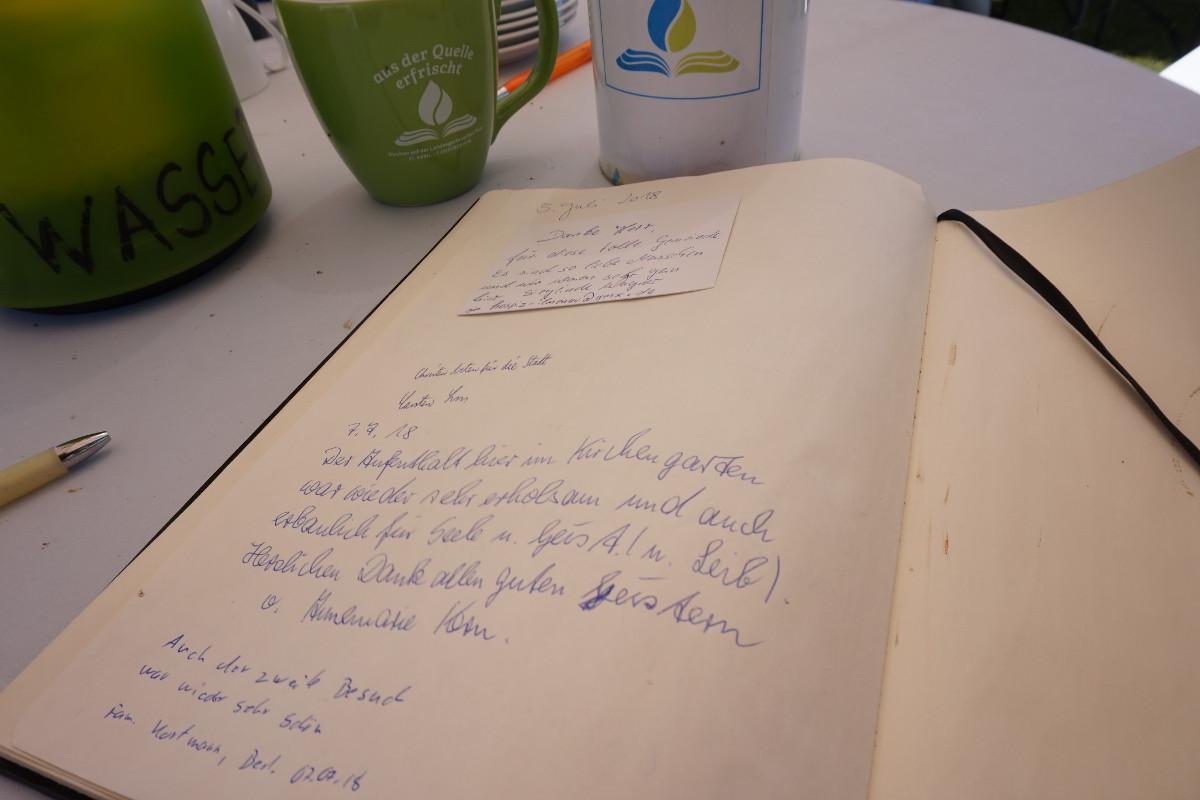 WASSE
aus der Quelle
erfrischt
5. Juli 2018
Danke Herr,
für diese tolle Gemeinde
Es sind so liebe Menschen
und wir waren sehr gern
hier
Christen beten für die Stadt
7.7.18
Der Aufenthalt hier im Kirchengarten
war wieder sehr erholsam und auch
erbaulich für Seele u. Geist. (u. Leib).
Herzlichen Dank allen guten Geistern
Annemarie Korn.
Auch der zweite Besuch
war wieder sehr schön
Fam. Hartmann, 07.07.18